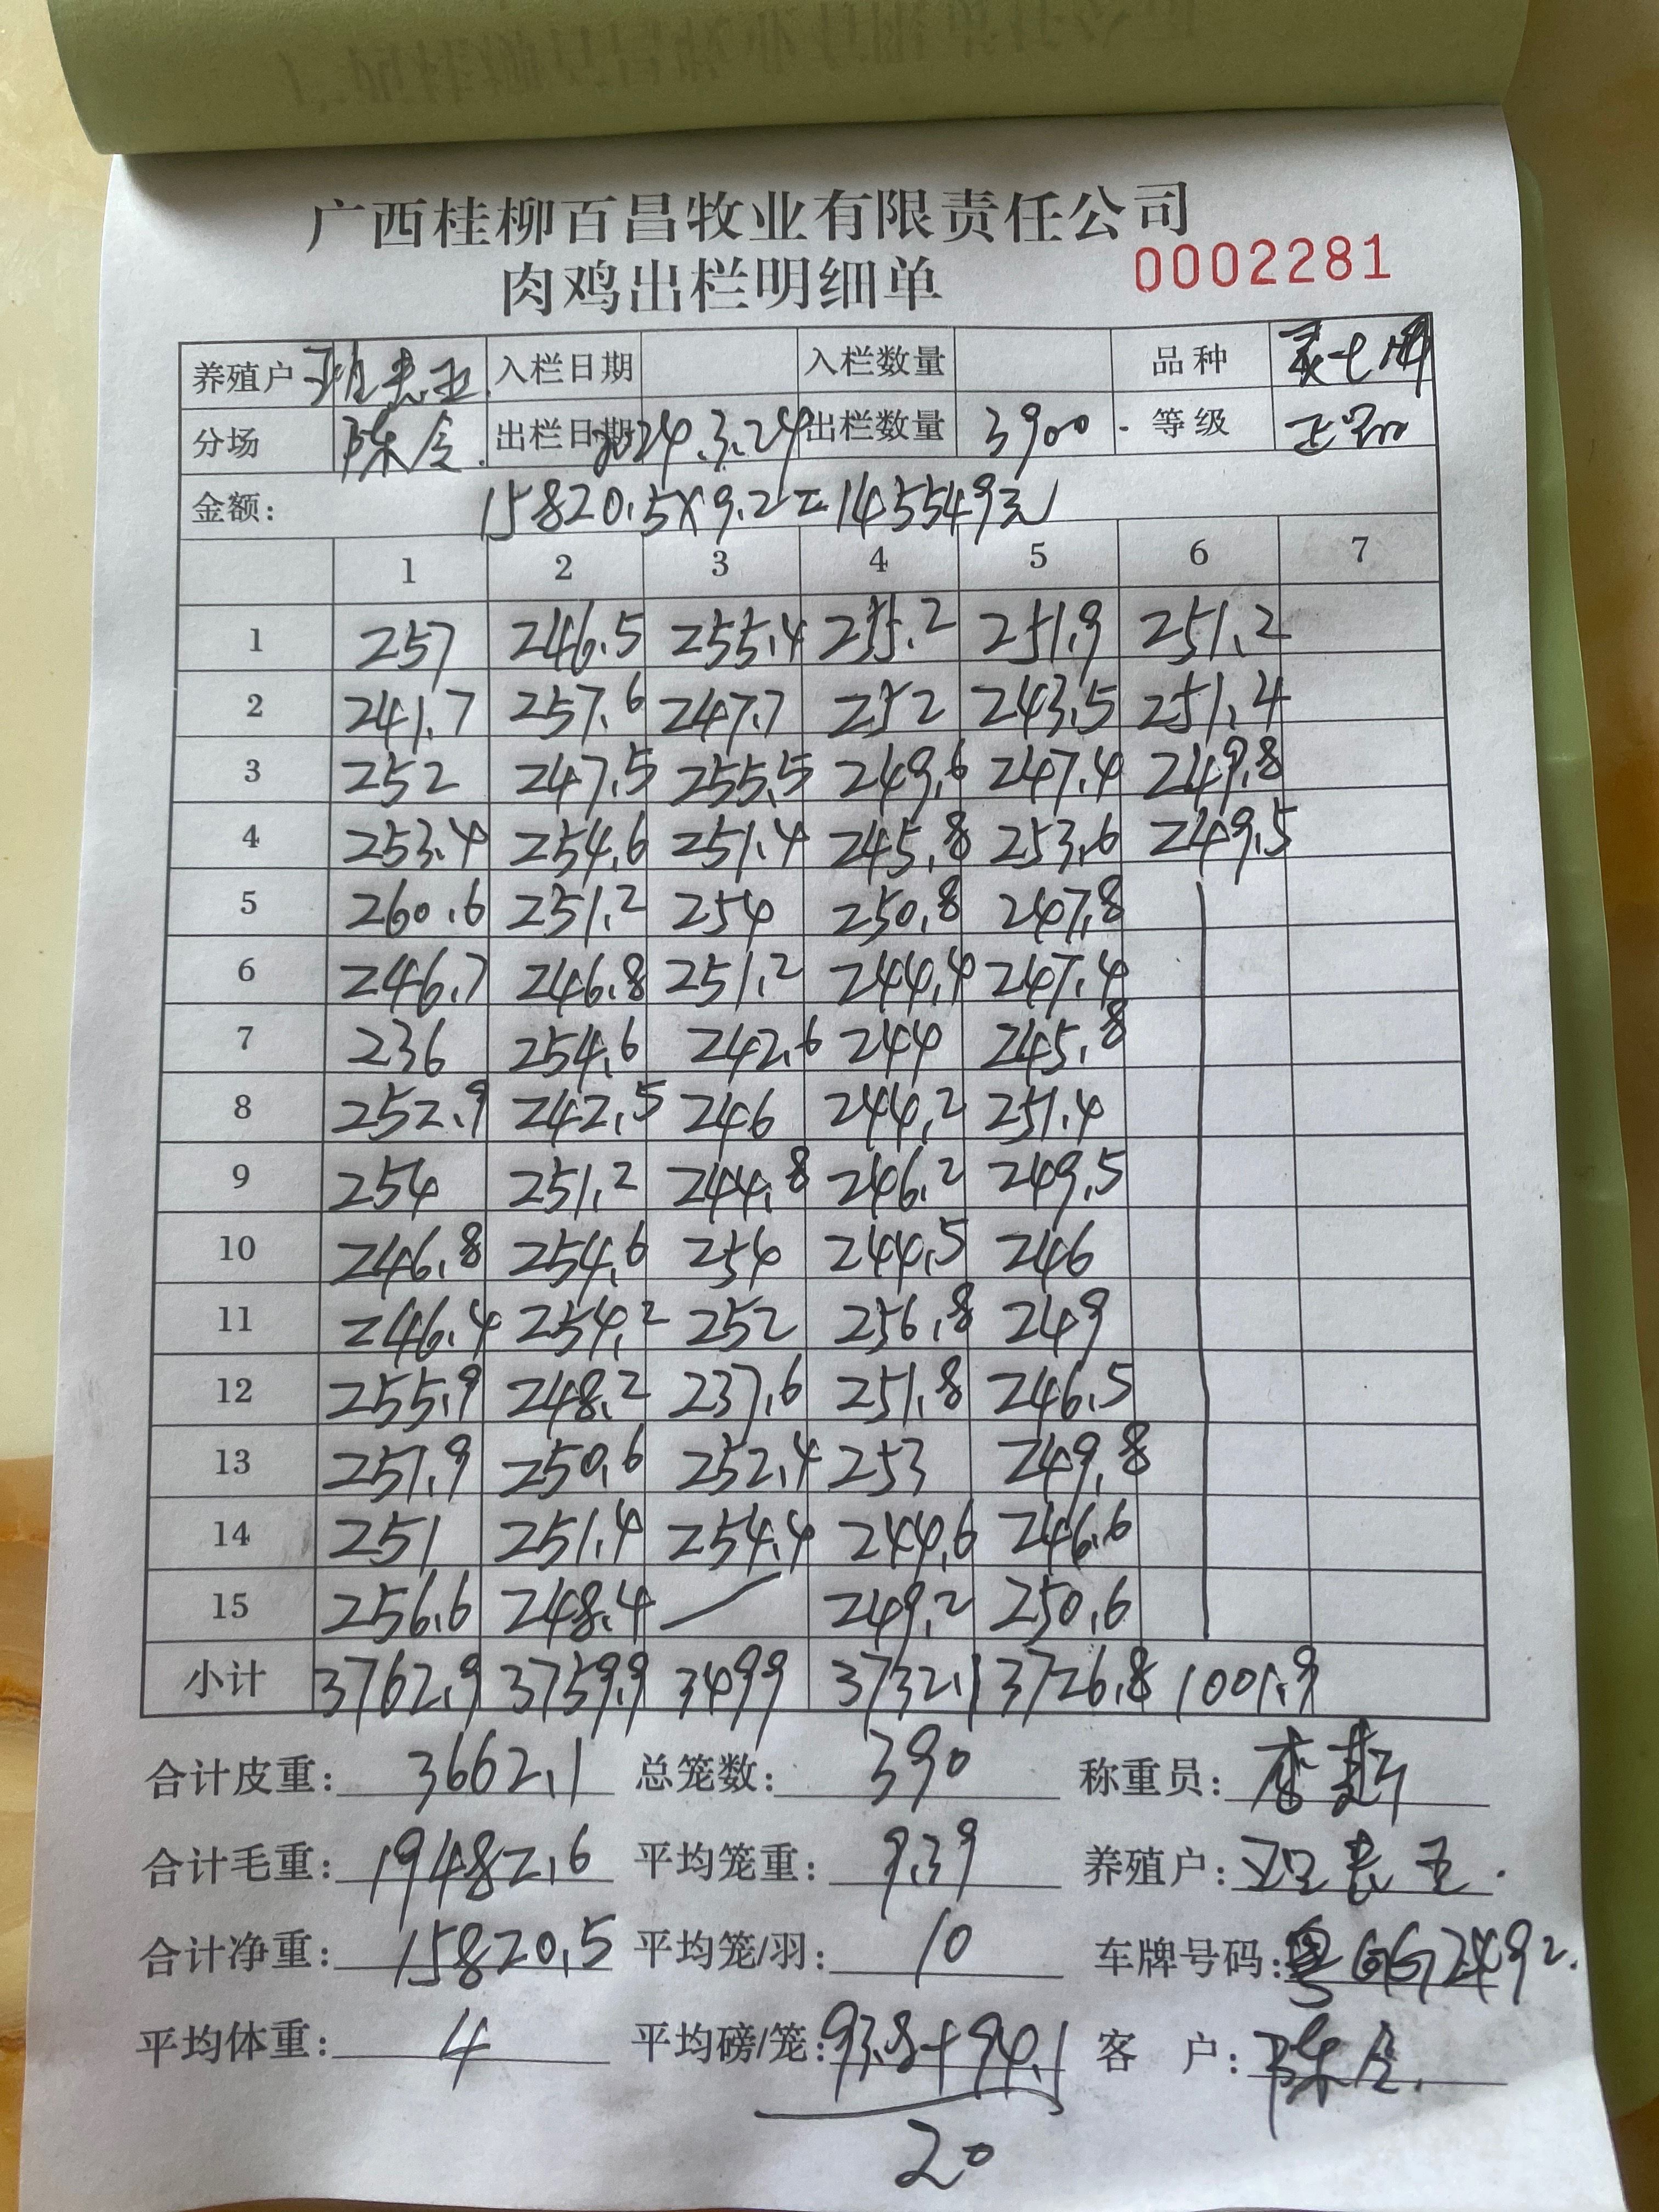 广西桂柳百昌牧业有限责任公司
肉鸡出栏明细单 0002281
养殖户 入栏日期 入栏数量 品种
分场 陈金. 出栏日期 2024.3.24 出栏数量 3900. 等级 正品
金额: 15820.5×9.2=145549元
1 2 3 4 5 6 7
1 257 246.5 255.4 255.2 251.9 251.2
2 241.7 257.6 247.7 252 243.5 251.4
3 252 247.5 255.5 249.6 247.4 249.8
4 253.4 254.6 251.4 245.8 253.6 249.5
5 260.6 251.2 254 250.8 247.8
6 246.7 246.8 251.2 244.4 247.4
7 236 254.6 242.6 244 245.8
8 252.9 242.5 246 244.2 251.4
9 254 251.2 244.8 246.2 249.5
10 246.8 254.6 254 244.5 246
11 246.4 254.2 252 256.8 249
12 255.9 248.2 237.6 251.8 246.5
13 251.9 250.6 252.4 253 249.8
14 251 251.4 254.4 244.6 246.6
15 256.6 248.4 249.2 250.6
小计 3762.9 3759.9 3499 3732.1 3726.8 1001.9
合计皮重: 3662.1 总笼数: 390 称重员:
合计毛重: 19482.6 平均笼重: 9.39 养殖户:
合计净重: 15820.5 平均笼/羽: 10 车牌号码: 粤GG2492.
平均体重: 4 平均磅/笼: 93.8+94.1 客 户: 陈金.
20